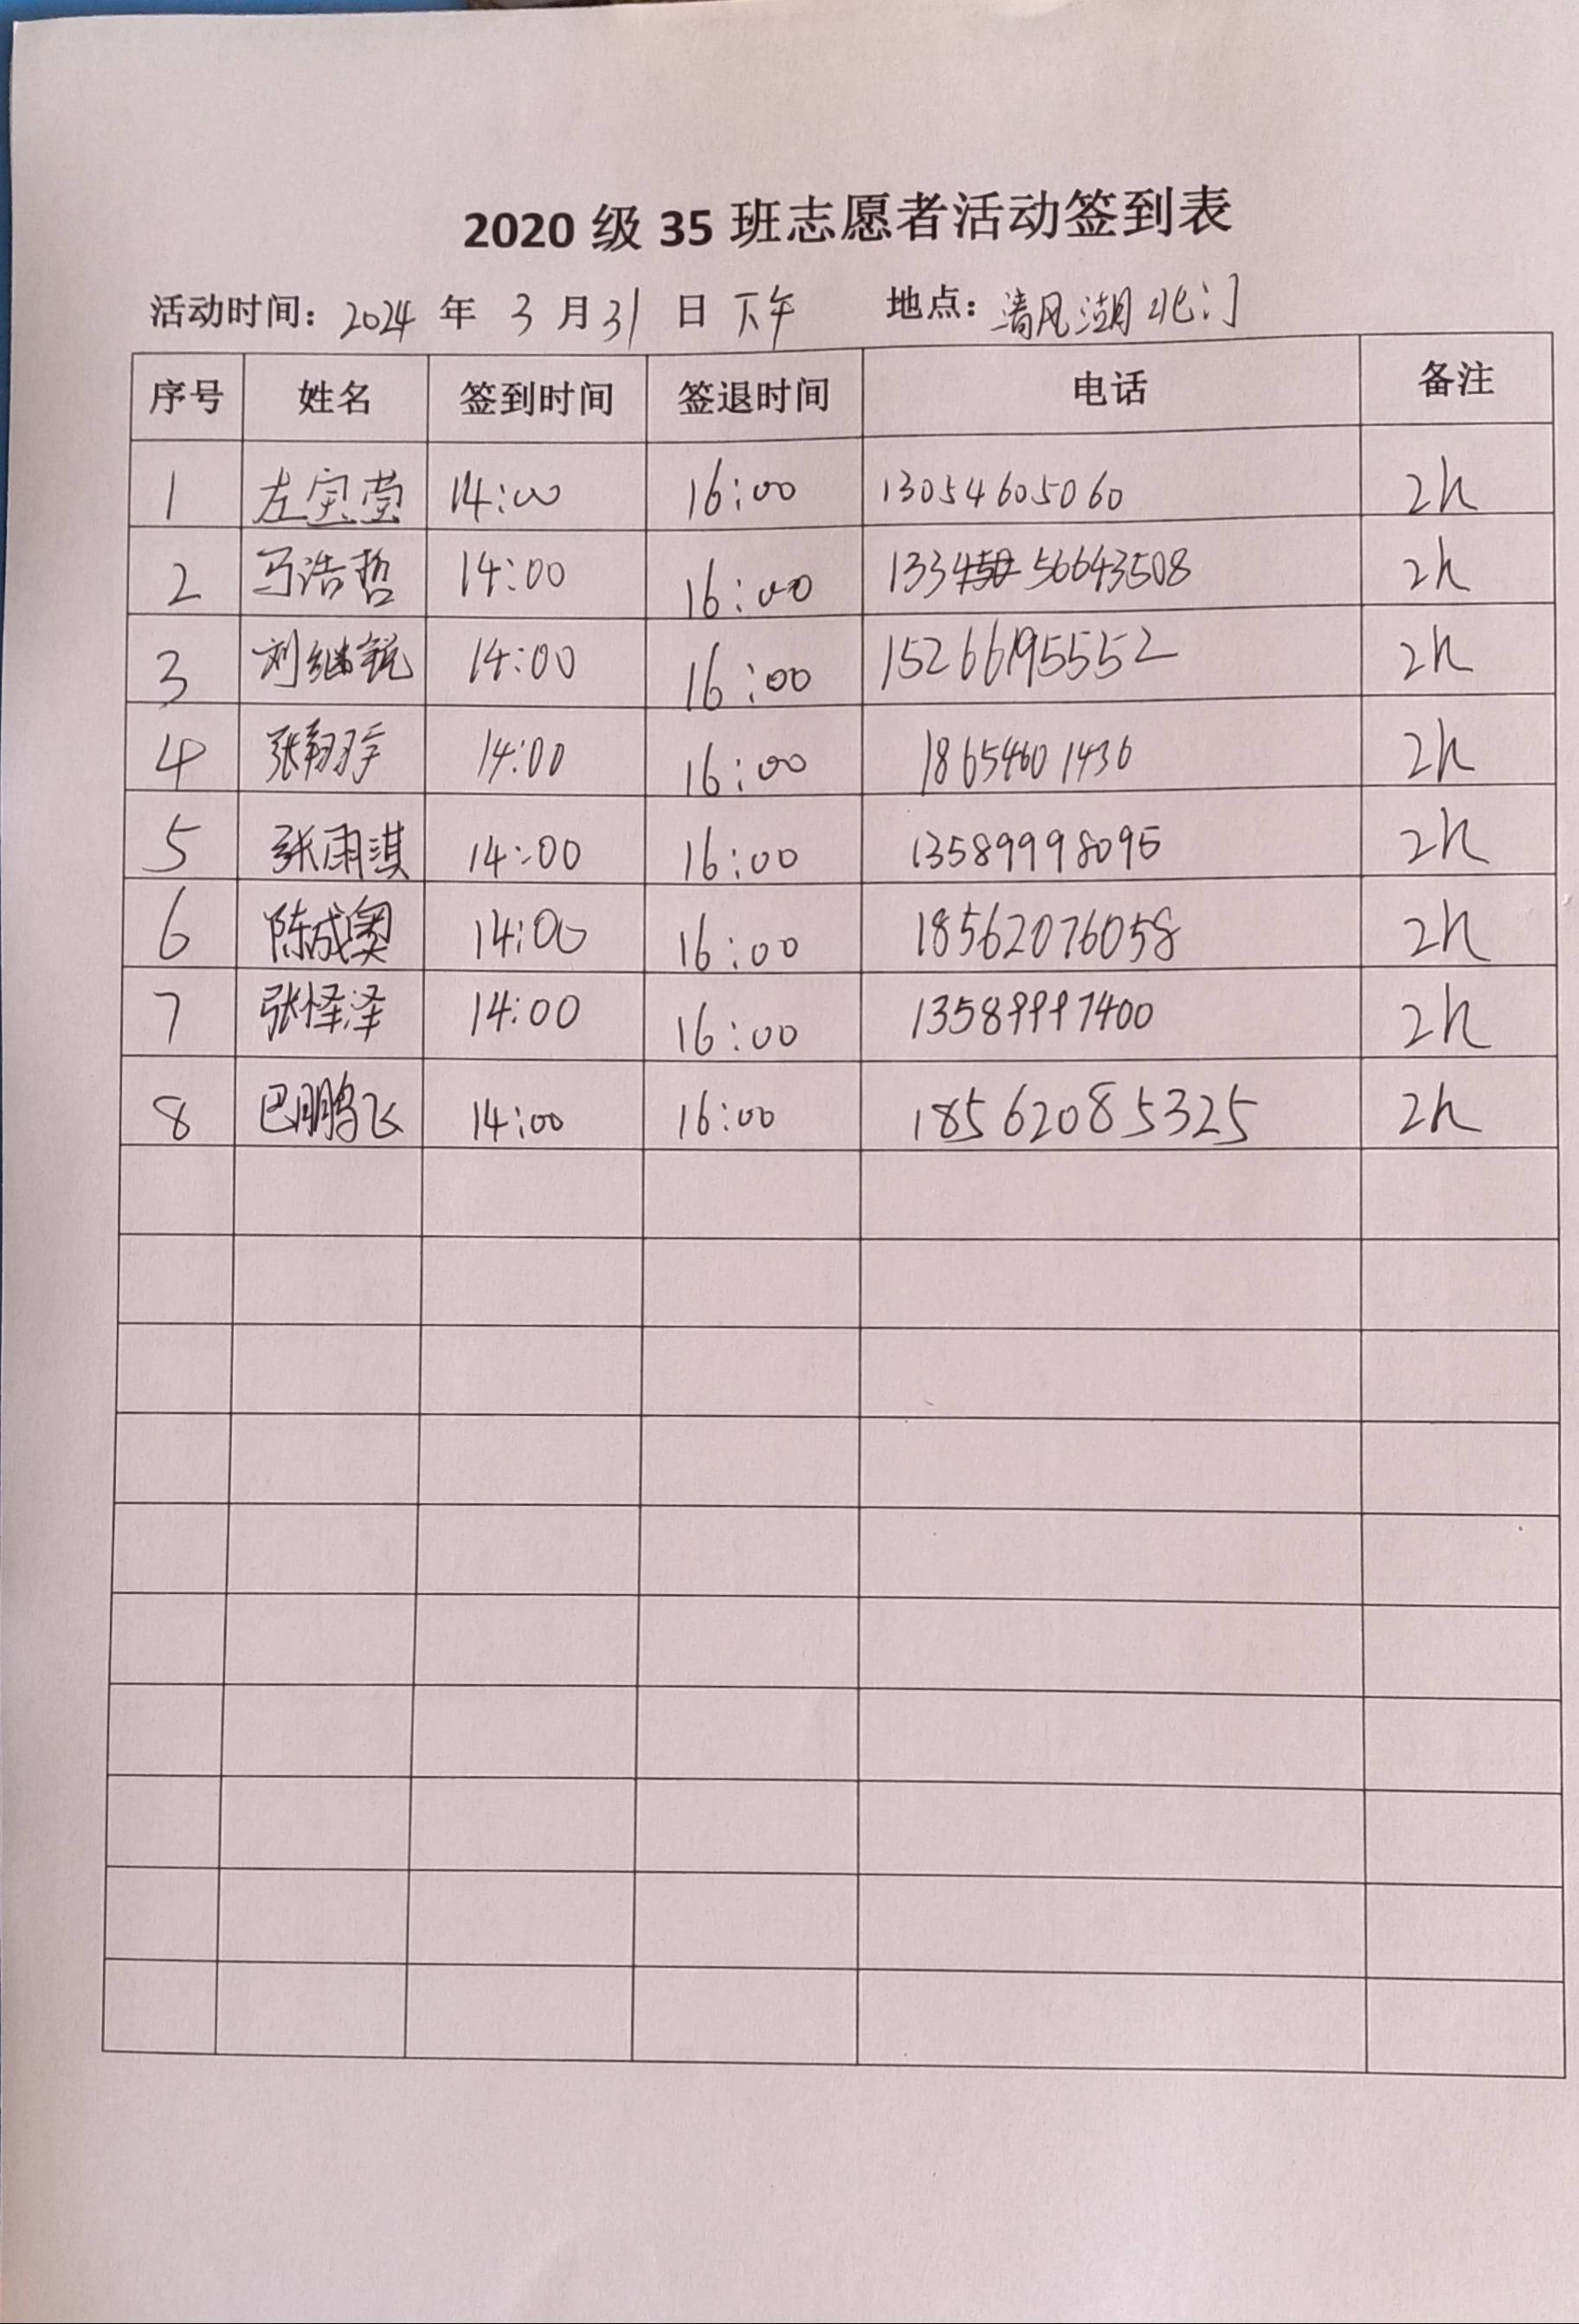 2020 级 35 班志愿者活动签到表
活动时间: 2024 年 3 月 31 日 下午 地点: 清风湖北门
序号 姓名 签到时间 签退时间 电话 备注
1 左宝莹 14:00 16:00 13054605060 2h
2 马浩哲 14:00 16:00 133 56643508 2h
3 刘继锐 14:00 16:00 15266195552 2h
4 张翔宇 14:00 16:00 18654601436 2h
5 张雨淇 14:00 16:00 13589998095 2h
6 陈成奥 14:00 16:00 18562076058 2h
7 张怿泽 14:00 16:00 13589997400 2h
8 巴鹏飞 14:00 16:00 18562085325 2h